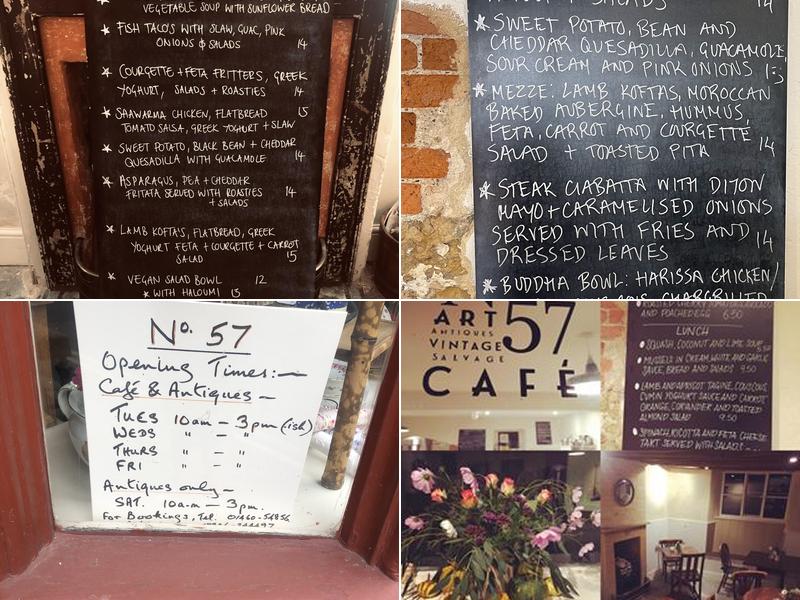 VEGETABLE SOUP WITH SUNFLOWER BREAD
* FISH TACO'S WITH SLAW, GUAC, PINK
ONIONS & SALADS 14
* COURGETTE + FETA FRITTERS, GREEK
YOGHURT, SALADS + ROASTIES 14
* SHAWARMA CHICKEN, FLATBREAD 15
TOMATO SALSA, GREEK YOGHURT + SLAW
* SWEET POTATO, BLACK BEAN + CHEDDAR
QUESADILLA WITH GUACAMOLE 14
* ASPARAGUS, PEA + CHEDDAR
FRITATA SERVED WITH ROASTIES 14
+ SALADS
* LAMB KOFTA'S, FLATBREAD, GREEK
YOGHURT FETA + COURGETTE + CARROT
SALAD 15
* VEGAN SALAD BOWL 12
* WITH HALOUMI 13
14
* SWEET POTATO, BEAN AND
CHEDDAR QUESADILLA, GUACAMOLE,
SOUR CREAM AND PINK ONIONS 13
* MEZZE: LAMB KOFTAS, MOROCCAN
BAKED AUBERGINE, HUMMUS,
FETA, CARROT AND COURGETTE
SALAD + TOASTED PITA 14
* STEAK CIABATTA WITH DIJON
MAYO + CARAMELISED ONIONS
SERVED WITH FRIES AND
DRESSED LEAVES 14
* BUDDHA BOWL: HARISSA CHICKEN/
No. 57
Opening Times:-
Café & Antiques -
TUES 10am - 3pm (ish)
WEDS " - "
THURS " - "
FRI " - "
Antiques only -
SAT. 10a.m - 3pm.
For Bookings, Tel. 01460-54856
ART 57
ANTIQUES
VINTAGE
SALVAGE
CAFÉ
AND POACHED EGG 6.50
LUNCH
SQUASH, COCONUT AND LIME SOUP 5.50
MUSSELS IN CREAM, WHITE AND GARLIC
SAUCE, BREAD AND SALADS 9.50
LAMB AND APRICOT TAGINE, COUSCOUS,
CUMIN YOGHURT SAUCE AND CARROT
ORANGE, CORIANDER AND TOASTED
ALMOND SALAD 9.50
SPINACH, RICOTTA AND FETA CHEESE
TART SERVED WITH SALADS